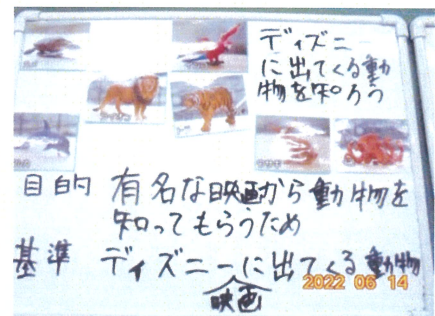 ディズニー
に出てくる動
物を知ろう
ライオン
トラ
目的 有名な映画から動物を
知ってもらうため
基準 ディズニー映画に出てくる動物
2022 06 14